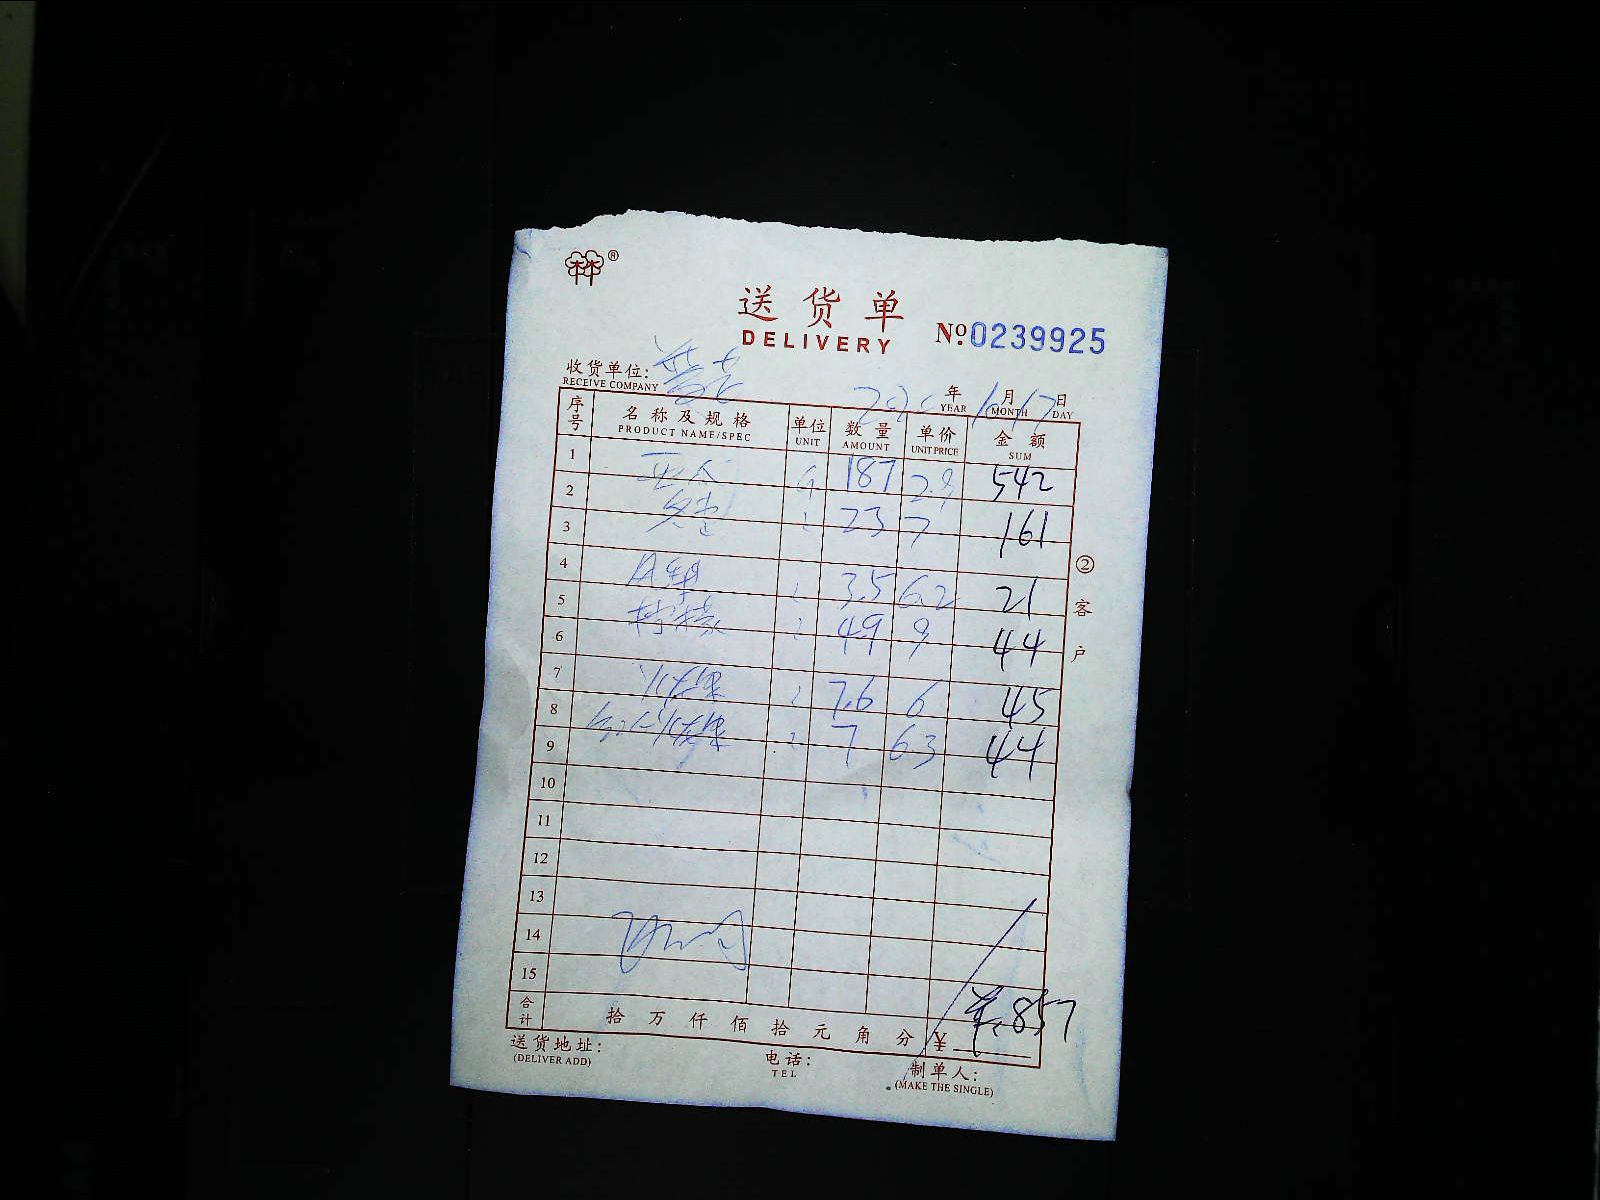 林®
送货单
DELIVERY
No.0239925
收货单位:
RECEIVE COMPANY
年 月 17日
YEAR MONTH DAY
序号 名称及规格 单位 数量 单价 金额
PRODUCT NAME/SPEC UNIT AMOUNT UNIT PRICE SUM
1 187 2.9 542
2
3 23 7 161
4
5 3.5 6.2 21
6 柠檬 4.9 9 44
7
8 7.6 6 45
9 7 6.3 44
10
11
12
13
14
15
合计 拾 万 仟 佰 拾 元 角 分 ¥ 857
② 客户
送货地址: 电话: 制单人:
(DELIVER ADD) TEL (MAKE THE SINGLE)